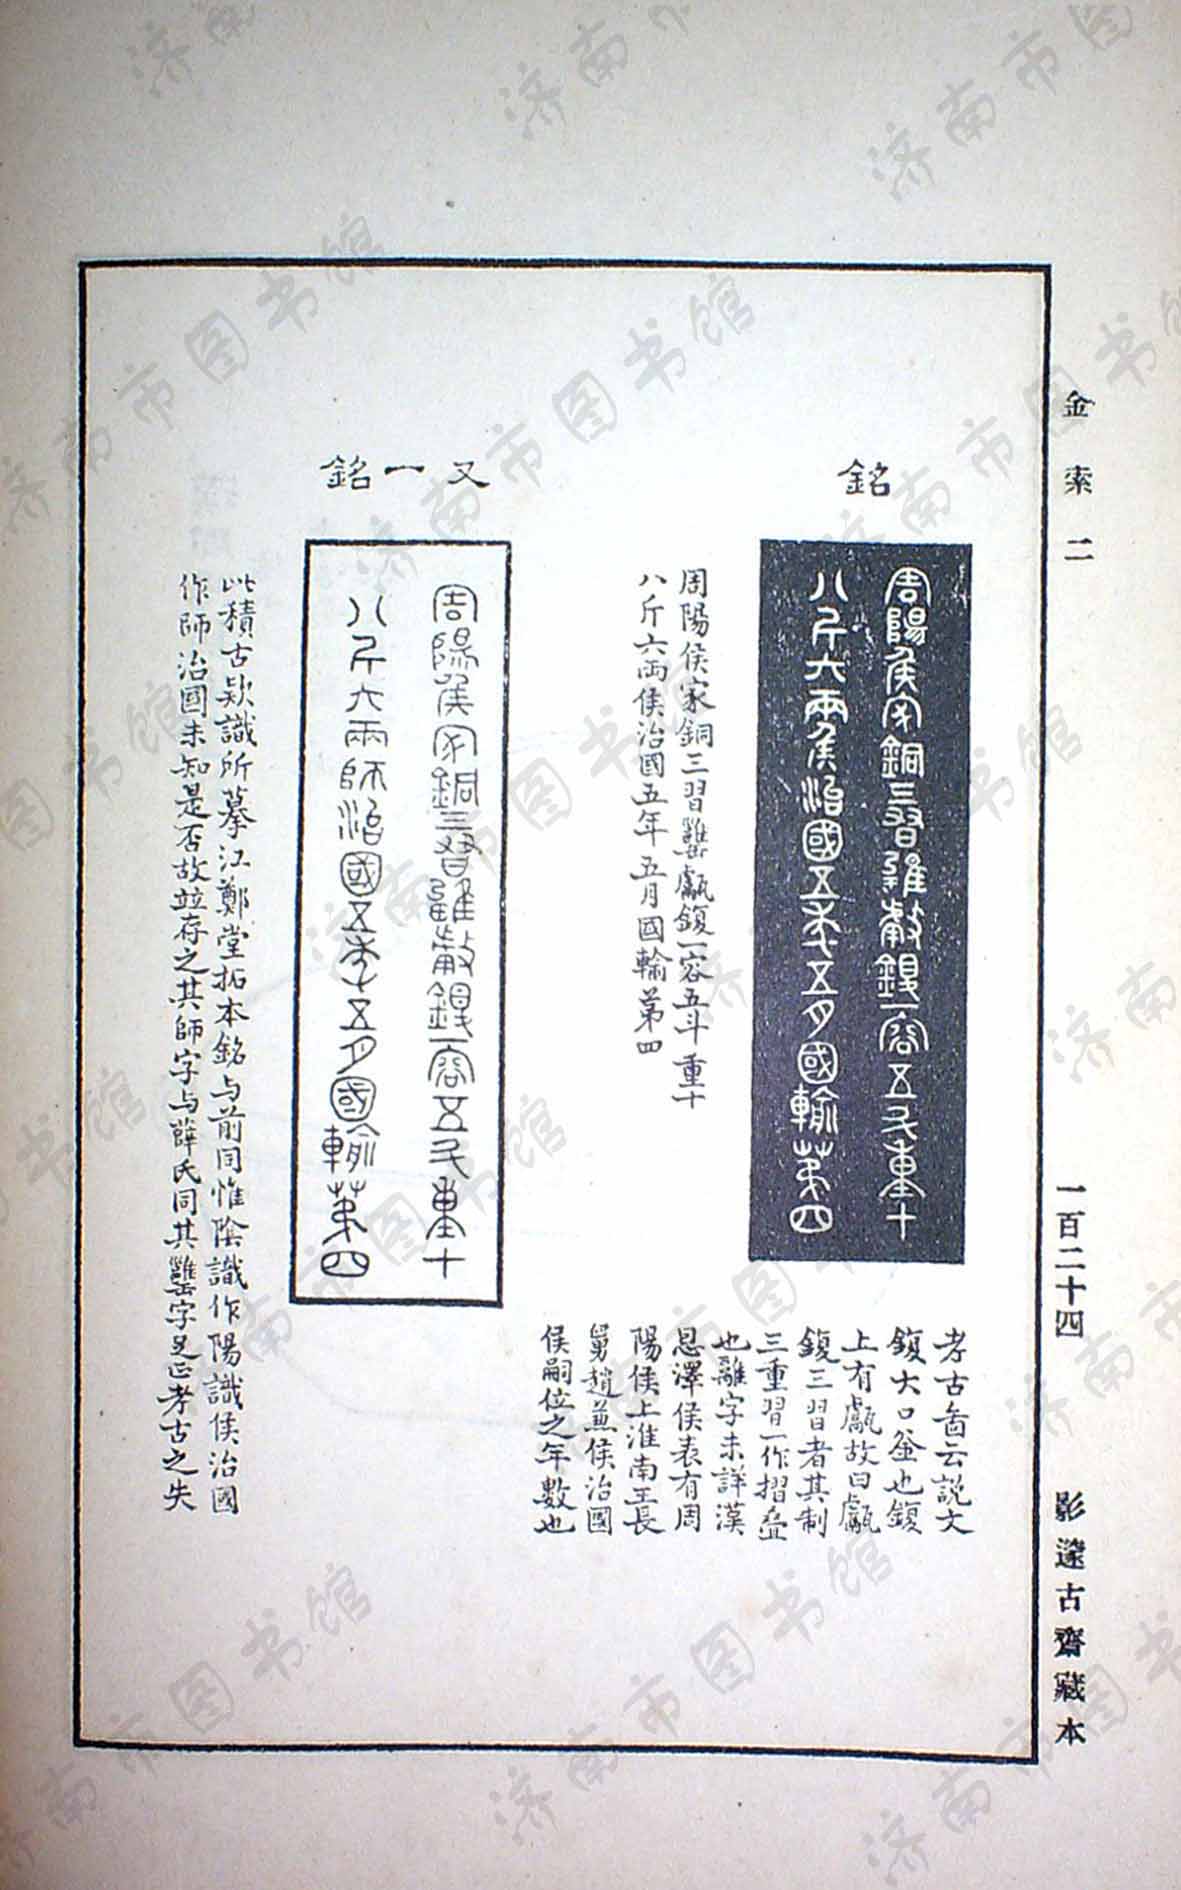 金索二
一百二十四
影邃古齋藏本
銘
周陽侯家銅三習鏂甗鍑一容五斗重十
八斤六兩侯治國五年五月國輸第四
周陽侯家銅三習甗鍑一容五斗重十
八斤六兩侯治國五年五月國輸第四
考古啚云說文
鍑大口釜也鍑
上有甗故曰甗
鍑三習者其制
三重習一作摺疊
也雞字未詳漢
恩澤侯表有周
陽侯上淮南王長
舅趙兼侯治國
侯嗣位之年數也
又一銘
周陽侯家銅三習甗鍑一容五斗重十
八斤六兩師治國五年五月國輸第四
此積古款識所摹江鄭堂拓本銘与前同惟陰識作陽識侯治國
作師治國未知是否故竝存之其師字与薛氏同其字足正考古之失
济南市图书馆